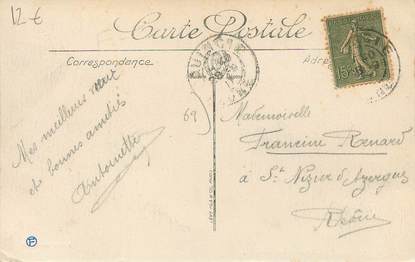 12 €
Carte Postale
Correspondance
QUINCIÉ
69
Mes meilleurs
et bonnes amitiés
Antoinette
Mademoiselle
Francine Renard
à St Nizier d'Azergues
Rhône
15